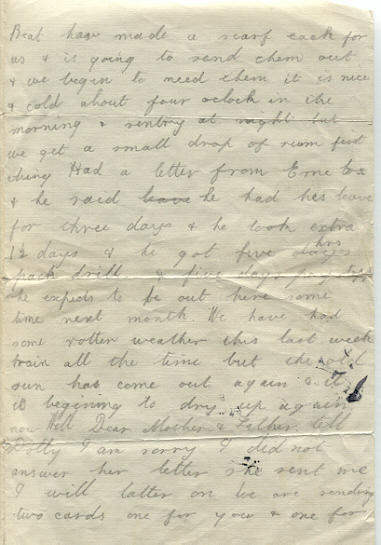 Beat have made a scarf each for
us & is going to send them out
& we begin to need them it is nice
& cold about four oclock in the
morning & sentry at night but
we get a small drop of rum first
thing Had a letter from Erne
& he said leave he had his leave
for three days & he took extra
1½ days & he got five days hrs
pack drill & five days pay
he expects to be out here some
time next month We have had
some rotter weather this last week
train all the time but the old
sun has come out again & it
is begining to dry up again
now Well Dear Mother & Father tell
Dolly I am sorry I did not
answer her letter she sent me
I will latter on we are sending
two cards one for you & one for